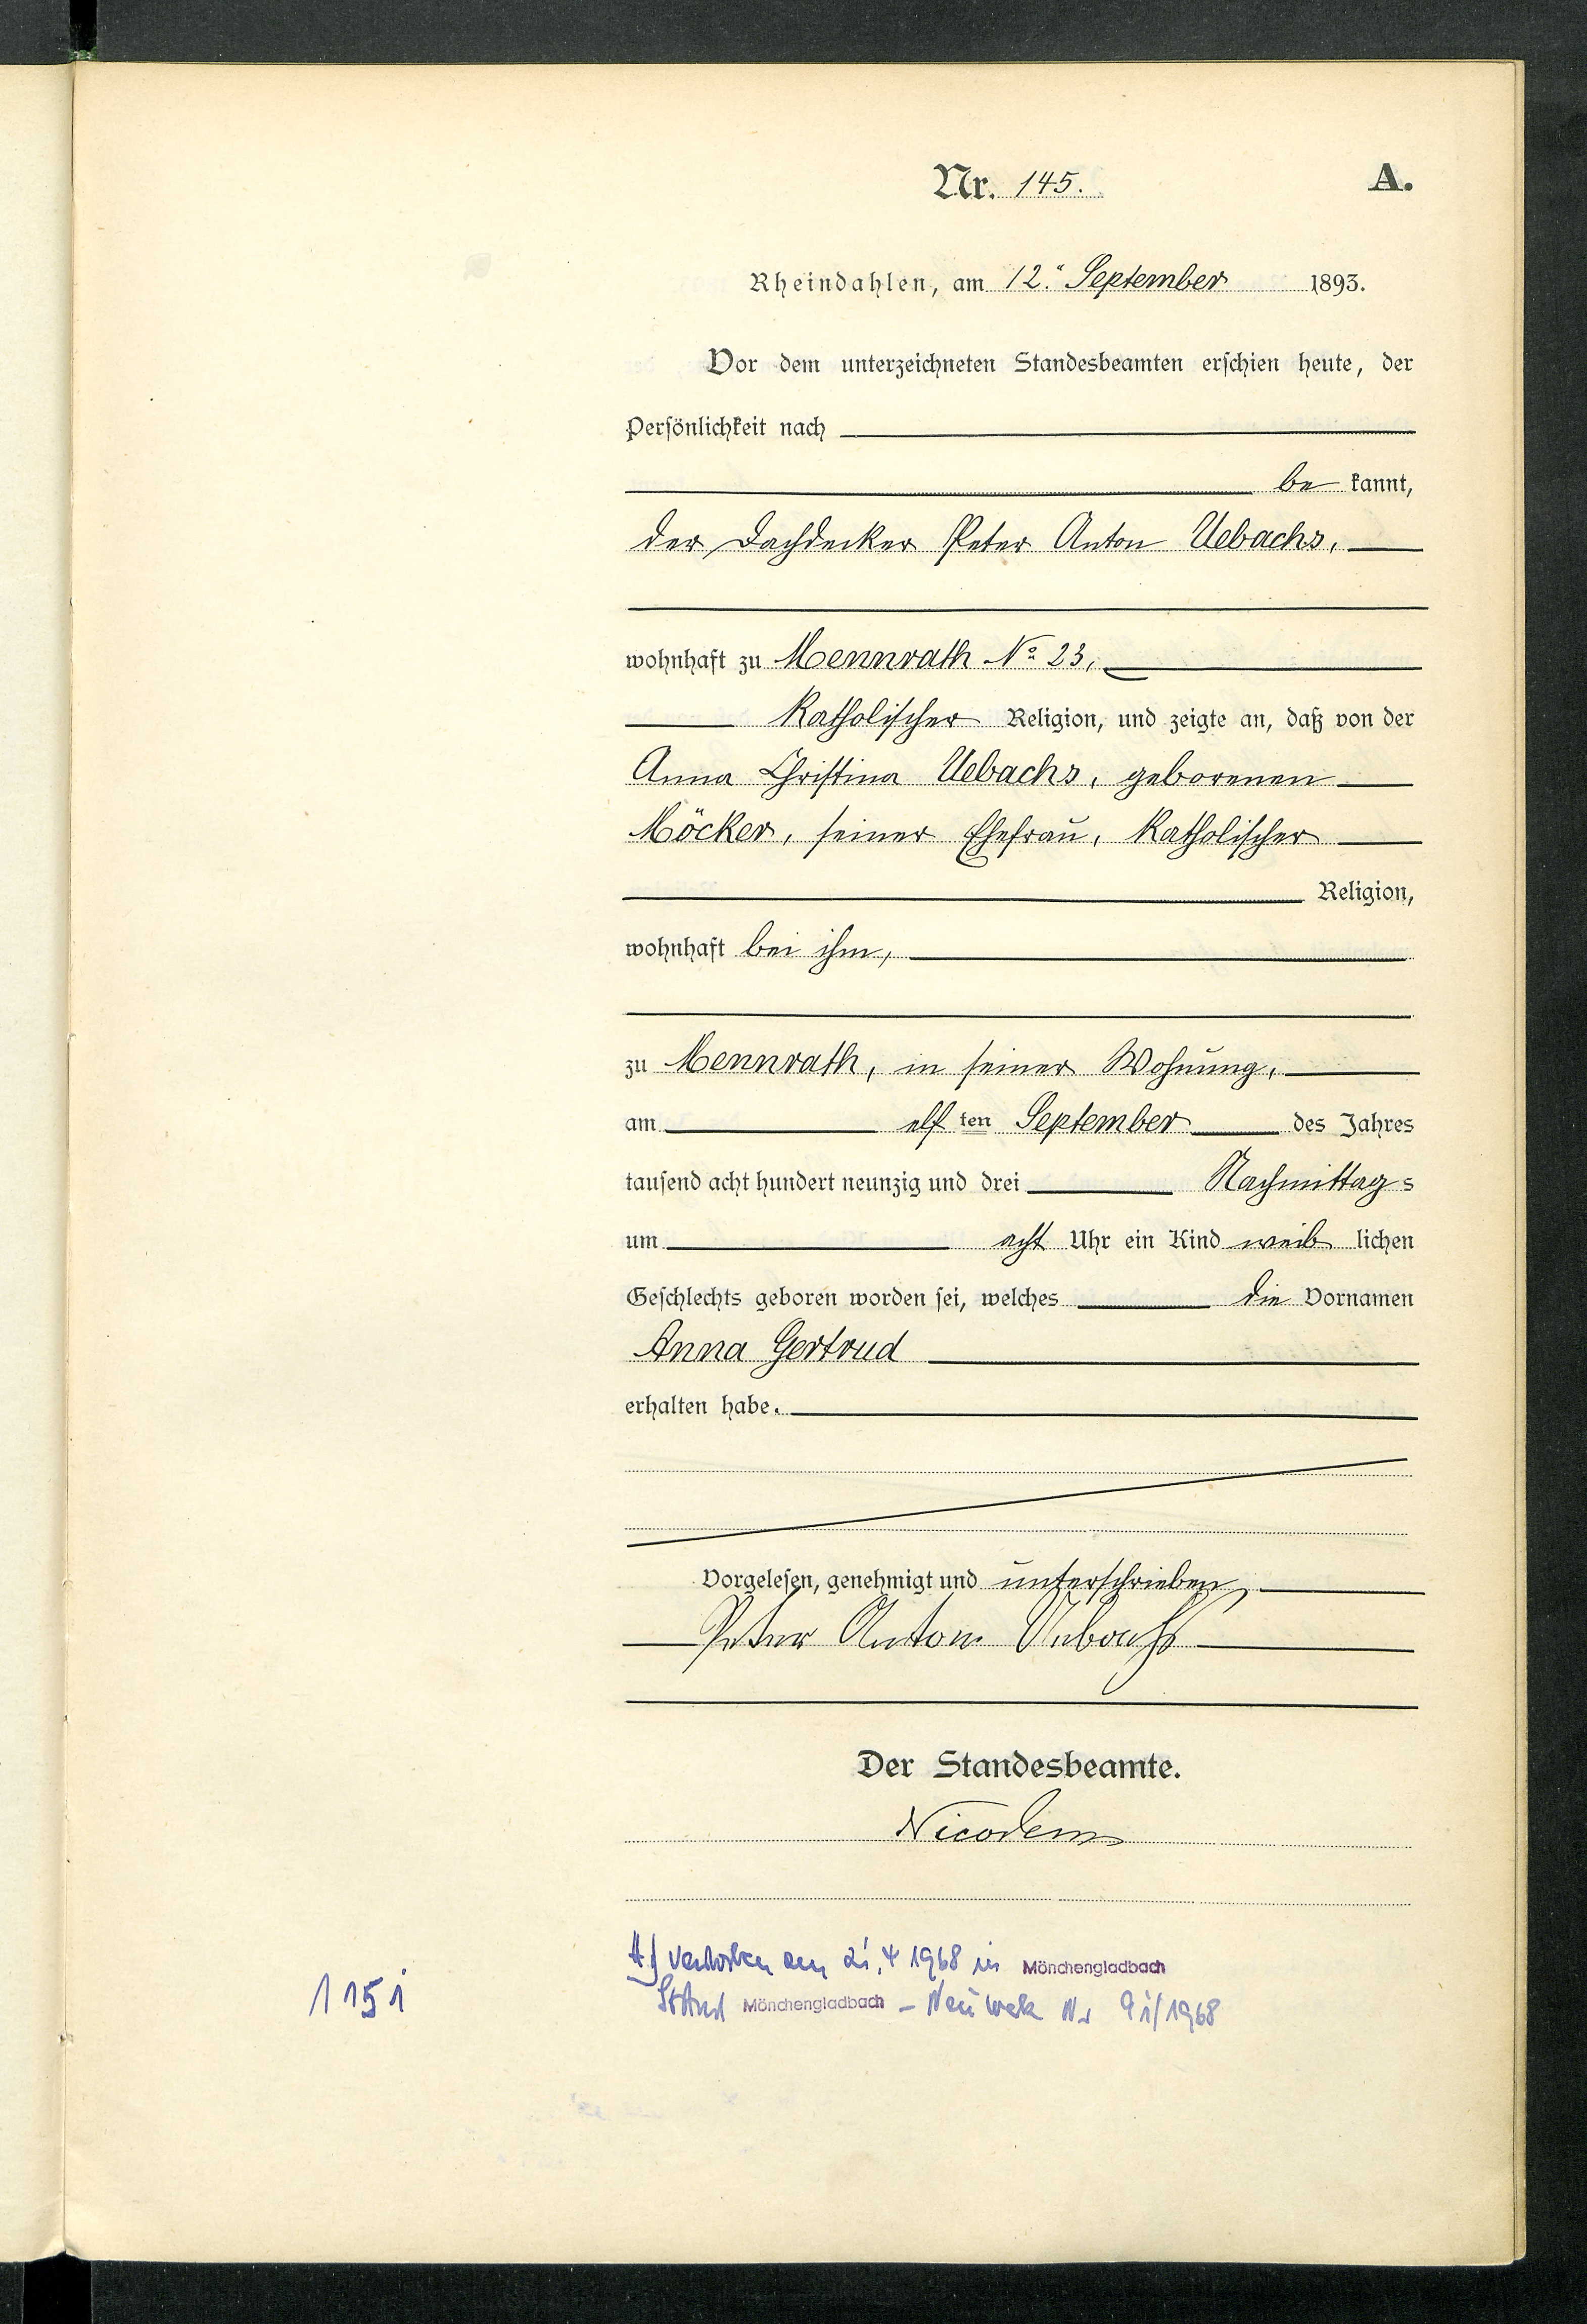 Nr. 145.
A.
Rheindahlen, am 12." September 1893.
Vor dem unterzeichneten Standesbeamten erschien heute, der
Persönlichkeit nach
be kannt,
der Dachdecker Peter Anton Uebachs,
wohnhaft zu Mennrath No 23,
katholischer Religion, und zeigte an, daß von der
Anna Christina Uebachs, geborenen
Möcker, seiner Ehefrau, katholischer
Religion,
wohnhaft bei ihm,
zu Mennrath, in seiner Wohnung,
am elf ten September des Jahres
tausend acht hundert neunzig und drei Nachmittags
um acht Uhr ein Kind weib lichen
Geschlechts geboren worden sei, welches die Vornamen
Anna Gertrud
erhalten habe.
Vorgelesen, genehmigt und unterschrieben
Peter Anton Uebachs
Der Standesbeamte.
Nicodem
verstorben am 4 1968 in Mönchengladbach
StAmt Mönchengladbach - Neuwerk Nr /1968